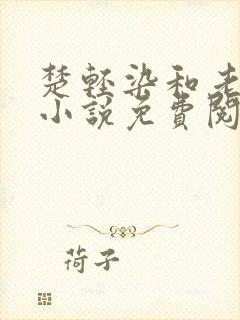 楚轻染和老
小說免費閱
荷子